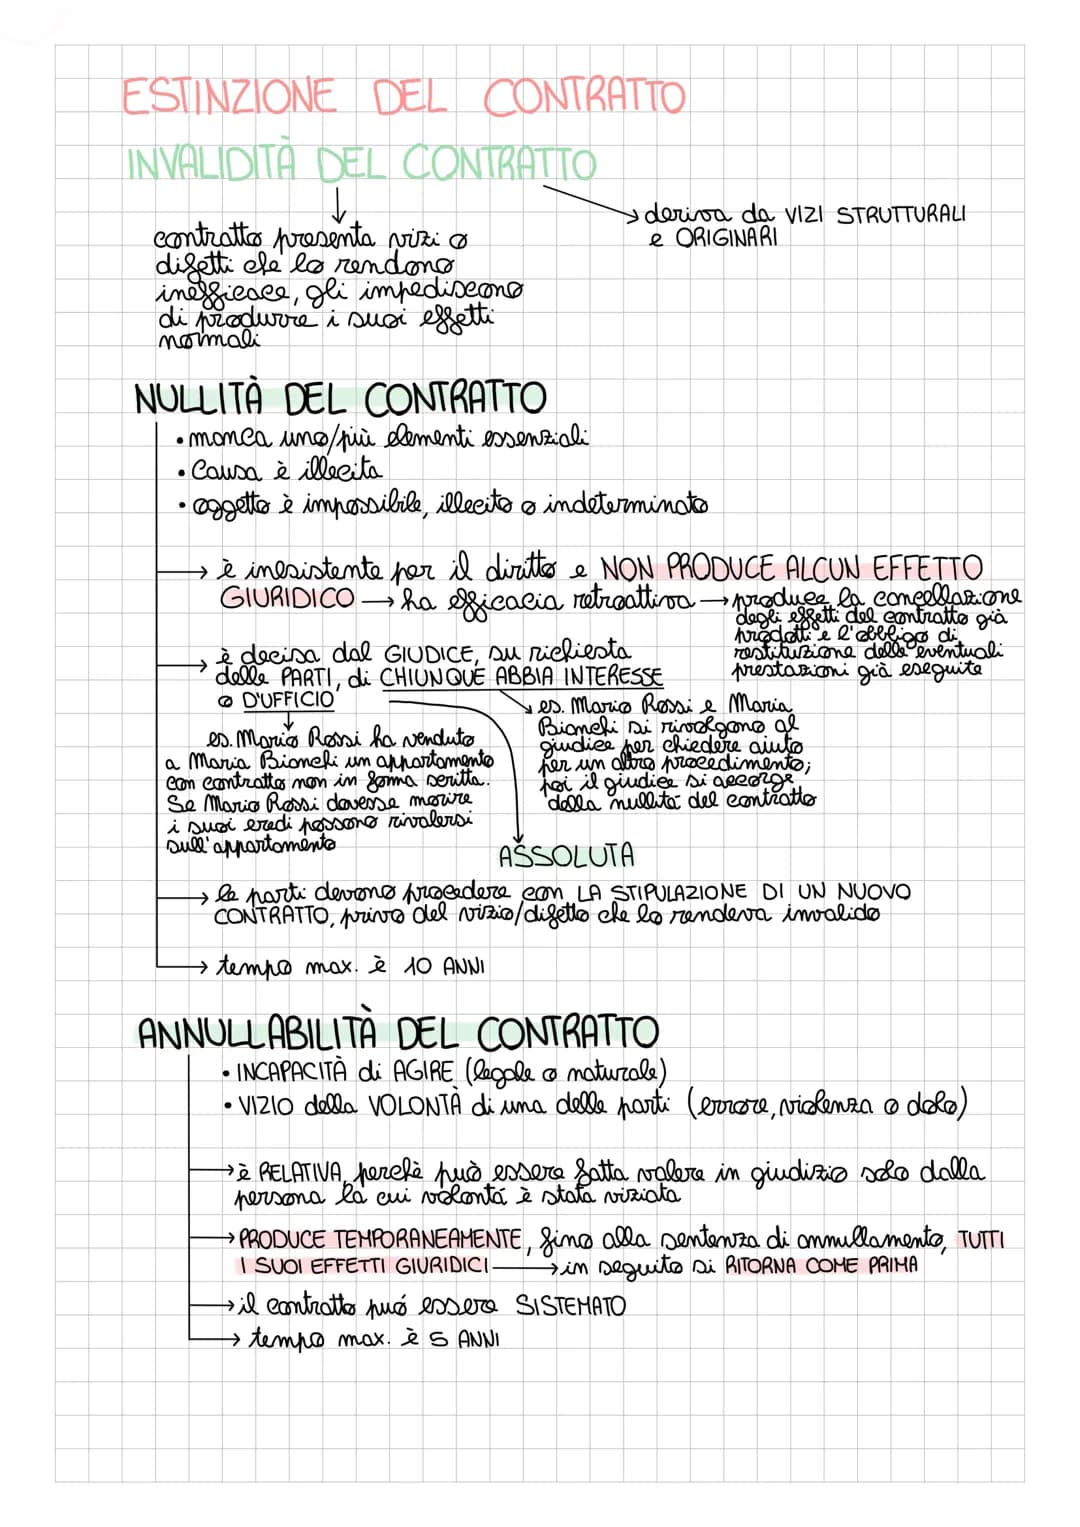 ESTINZIONE DEL CONTRATTO
INVALIDITÀ DEL CONTRATTO
→ deriva da VIZI STRUTTURALI
e ORIGINARI
contratto presenta vizi o
difetti che lo rendono
inefficace, gli impediscono
di produrre i suoi effetti
normali
NULLITÀ DEL CONTRATTO
• manca uno/più elementi essenziali
• Causa è illecita
• oggetto è impossibile, illecito o indeterminato
→ è inesistente per il diritto e NON PRODUCE ALCUN EFFETTO
GIURIDICO → ha efficacia retroattiva → produce la cancellazione
degli effetti del contratto già
prodotti e l'obbligo di
restituzione delle eventuali
prestazioni già eseguite
→ è decisa dal GIUDICE, su richiesta
delle PARTI, di CHIUNQUE ABBIA INTERESSE
o D'UFFICIO
es. Mario Rossi e Maria
Bianchi si rivolgono al
giudice per chiedere aiuto
per un altro procedimento;
poi il giudice si accorge
della nullità del contratto
es. Mario Rossi ha venduto
a Maria Bianchi un appartamento
con contratto non in forma scritta.
Se Mario Rossi dovesse morire
i suoi eredi possono rivalersi
sull'appartamento
ASSOLUTA
→ le parti devono procedere con LA STIPULAZIONE DI UN NUOVO
CONTRATTO, privo del vizio/difetto che lo rendeva invalido
→ tempo max. è 10 ANNI
ANNULLABILITÀ DEL CONTRATTO
• INCAPACITÀ di AGIRE (legale o naturale)
• VIZIO della VOLONTÀ di una delle parti (errore, violenza o dolo)
→ è RELATIVA, perchè può essere fatta valere in giudizio solo dalla
persona la cui volontà è stata viziata
→ PRODUCE TEMPORANEAMENTE, fino alla sentenza di annullamento, TUTTI
I SUOI EFFETTI GIURIDICI → in seguito si RITORNA COME PRIMA
→ il contratto puó essere SISTEMATO
→ tempo max. è 5 ANNI